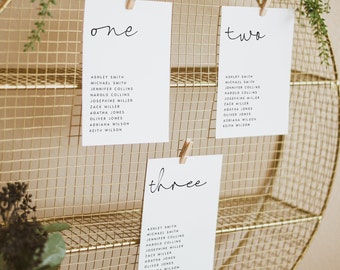 one
ASHLEY SMITH
MICHAEL SMITH
JENNIFER COLLINS
HAROLD COLLINS
JOSEPHINE MILLER
ZACK MILLER
AGATHA JONES
OLIVER JONES
ADRIANA WILSON
KEITH WILSON
two
ASHLEY SMITH
MICHAEL SMITH
JENNIFER COLLINS
HAROLD COLLINS
JOSEPHINE MILLER
ZACK MILLER
AGATHA JONES
OLIVER JONES
ADRIANA WILSON
KEITH WILSON
three
ASHLEY SMITH
MICHAEL SMITH
JENNIFER COLLINS
HAROLD COLLINS
JOSEPHINE MILLER
ZACK MILLER
AGATHA JONES
OLIVER JONES